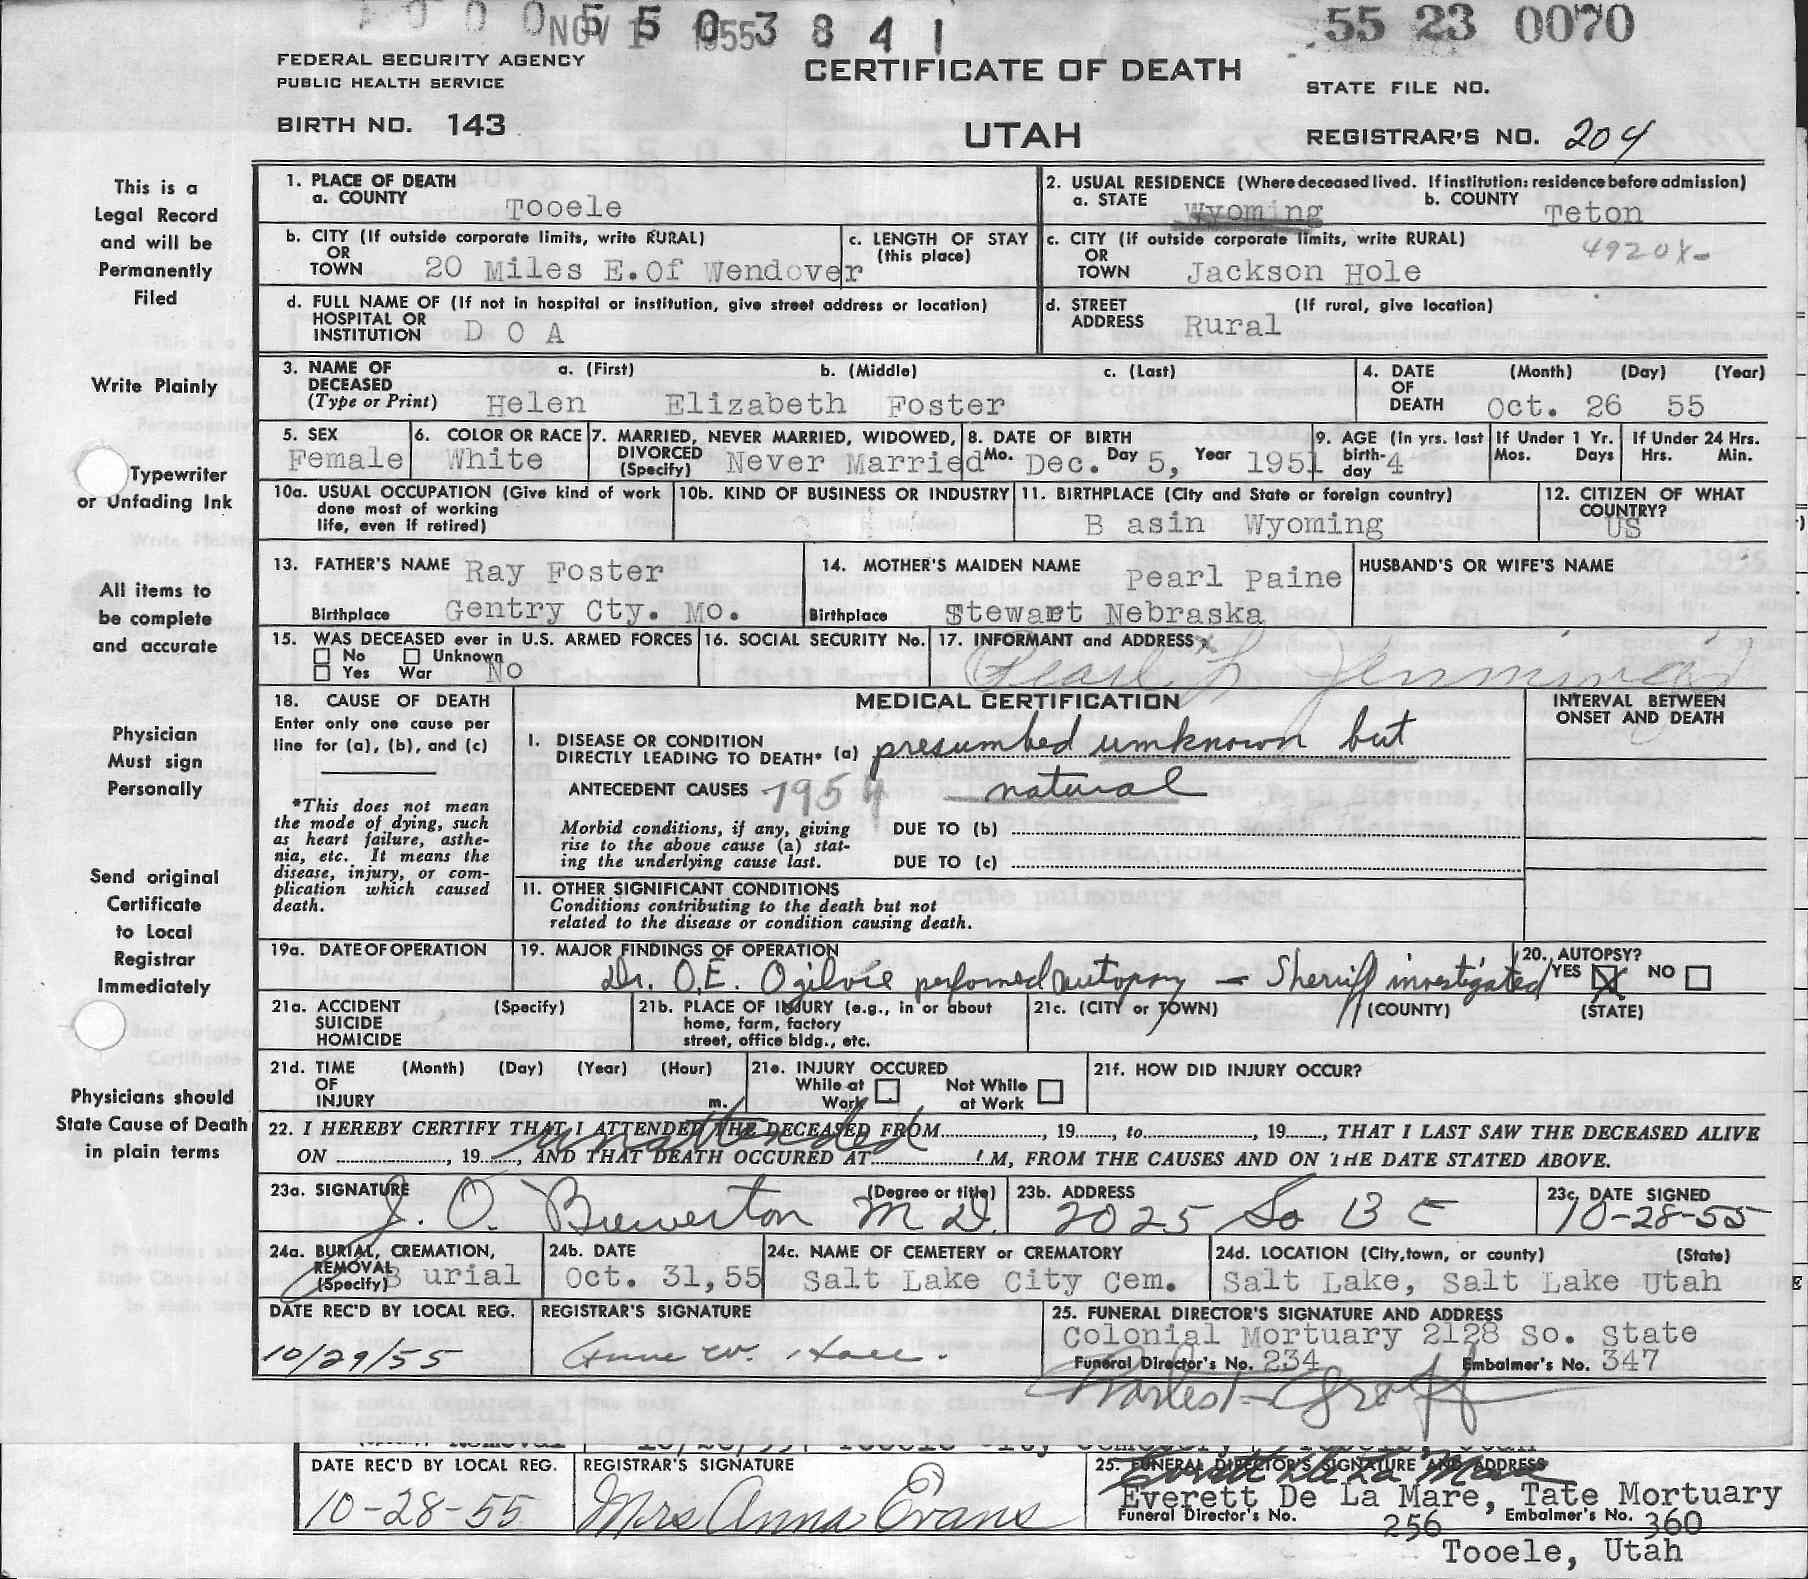 NOV 1 1955
0 0 0 5 5 0 3 8 4 1
55 23 0070
FEDERAL SECURITY AGENCY
PUBLIC HEALTH SERVICE
CERTIFICATE OF DEATH
STATE FILE NO.
BIRTH NO. 143
UTAH
REGISTRAR'S NO. 204
This is a
Legal Record
and will be
Permanently
Filed
Write Plainly
Typewriter
or Unfading Ink
All items to
be complete
and accurate
Physician
Must sign
Personally
Send original
Certificate
to Local
Registrar
Immediately
Physicians should
State Cause of Death
in plain terms
1. PLACE OF DEATH
a. COUNTY Tooele
2. USUAL RESIDENCE (Where deceased lived. If institution: residence before admission)
a. STATE Wyoming b. COUNTY Teton
b. CITY (If outside corporate limits, write RURAL)
OR
TOWN 20 Miles E.Of Wendover
c. LENGTH OF STAY
(this place)
c. CITY (if outside corporate limits, write RURAL)
OR
TOWN Jackson Hole
4920X-
d. FULL NAME OF (If not in hospital or institution, give street address or location)
HOSPITAL OR
INSTITUTION D O A
d. STREET (If rural, give location)
ADDRESS Rural
3. NAME OF
DECEASED
(Type or Print)
a. (First) b. (Middle) c. (Last)
Helen Elizabeth Foster
4. DATE (Month) (Day) (Year)
OF
DEATH Oct. 26 55
5. SEX
Female
6. COLOR OR RACE
White
7. MARRIED, NEVER MARRIED, WIDOWED,
DIVORCED
(Specify) Never Married
8. DATE OF BIRTH
Mo. Dec. Day 5, Year 1951
9. AGE (in yrs. last
birth-
day 4
If Under 1 Yr.
Mos. Days
If Under 24 Hrs.
Hrs. Min.
10a. USUAL OCCUPATION (Give kind of work
done most of working
life, even if retired)
10b. KIND OF BUSINESS OR INDUSTRY
11. BIRTHPLACE (City and State or foreign country)
B asin Wyoming
12. CITIZEN OF WHAT
COUNTRY?
US
13. FATHER'S NAME Ray Foster
Birthplace Gentry Cty. Mo.
14. MOTHER'S MAIDEN NAME Pearl Paine
Birthplace Stewart Nebraska
HUSBAND'S OR WIFE'S NAME
15. WAS DECEASED ever in U.S. ARMED FORCES
No Unknown
Yes War NO
16. SOCIAL SECURITY No.
17. INFORMANT and ADDRESS X
Pearl L Jennings
18. CAUSE OF DEATH
Enter only one cause per
line for (a), (b), and (c)
*This does not mean
the mode of dying, such
as heart failure, asthe-
nia, etc. It means the
disease, injury, or com-
plication which caused
death.
MEDICAL CERTIFICATION
INTERVAL BETWEEN
ONSET AND DEATH
I. DISEASE OR CONDITION
DIRECTLY LEADING TO DEATH* (a) presumbed umknown but
ANTECEDENT CAUSES 7954 natural
Morbid conditions, if any, giving
rise to the above cause (a) stat-
ing the underlying cause last.
DUE TO (b)
DUE TO (c)
II. OTHER SIGNIFICANT CONDITIONS
Conditions contributing to the death but not
related to the disease or condition causing death.
19a. DATE OF OPERATION
19. MAJOR FINDINGS OF OPERATION
Dr. O.E. Ogilvie perfomed autopsy - Sheriff investigated
20. AUTOPSY?
YES X NO
21a. ACCIDENT (Specify)
SUICIDE
HOMICIDE
21b. PLACE OF INJURY (e.g., in or about
home, farm, factory
street, office bldg., etc.
21c. (CITY or TOWN) (COUNTY) (STATE)
21d. TIME (Month) (Day) (Year) (Hour)
OF
INJURY m.
21e. INJURY OCCURED
While at Work Not While at Work
21f. HOW DID INJURY OCCUR?
unattended
22. I HEREBY CERTIFY THAT I ATTENDED THE DECEASED FROM, 19, to, 19, THAT I LAST SAW THE DECEASED ALIVE
ON, 19, AND THAT DEATH OCCURED AT .M, FROM THE CAUSES AND ON THE DATE STATED ABOVE.
23a. SIGNATURE (Degree or title)
J. O. Brewerton M D.
23b. ADDRESS
2025 So 13 E
23c. DATE SIGNED
10-28-55
24a. BURIAL, CREMATION,
REMOVAL
(Specify) B urial
24b. DATE
Oct. 31,55
24c. NAME OF CEMETERY or CREMATORY
Salt Lake City Cem.
24d. LOCATION (City, town, or county) (State)
Salt Lake, Salt Lake Utah
DATE REC'D BY LOCAL REG.
10/29/55
REGISTRAR'S SIGNATURE
Anne W. Hall.
25. FUNERAL DIRECTOR'S SIGNATURE AND ADDRESS
Colonial Mortuary 2128 So. State
Funeral Director's No. 234 Embalmer's No. 347
DATE REC'D BY LOCAL REG.
10-28-55
REGISTRAR'S SIGNATURE
Mrs Anna Evans
25. FUNERAL DIRECTOR'S SIGNATURE AND ADDRESS
Everett De La Mare
Everett De La Mare, Tate Mortuary
Funeral Director's No. 256 Embalmer's No. 360
Tooele, Utah